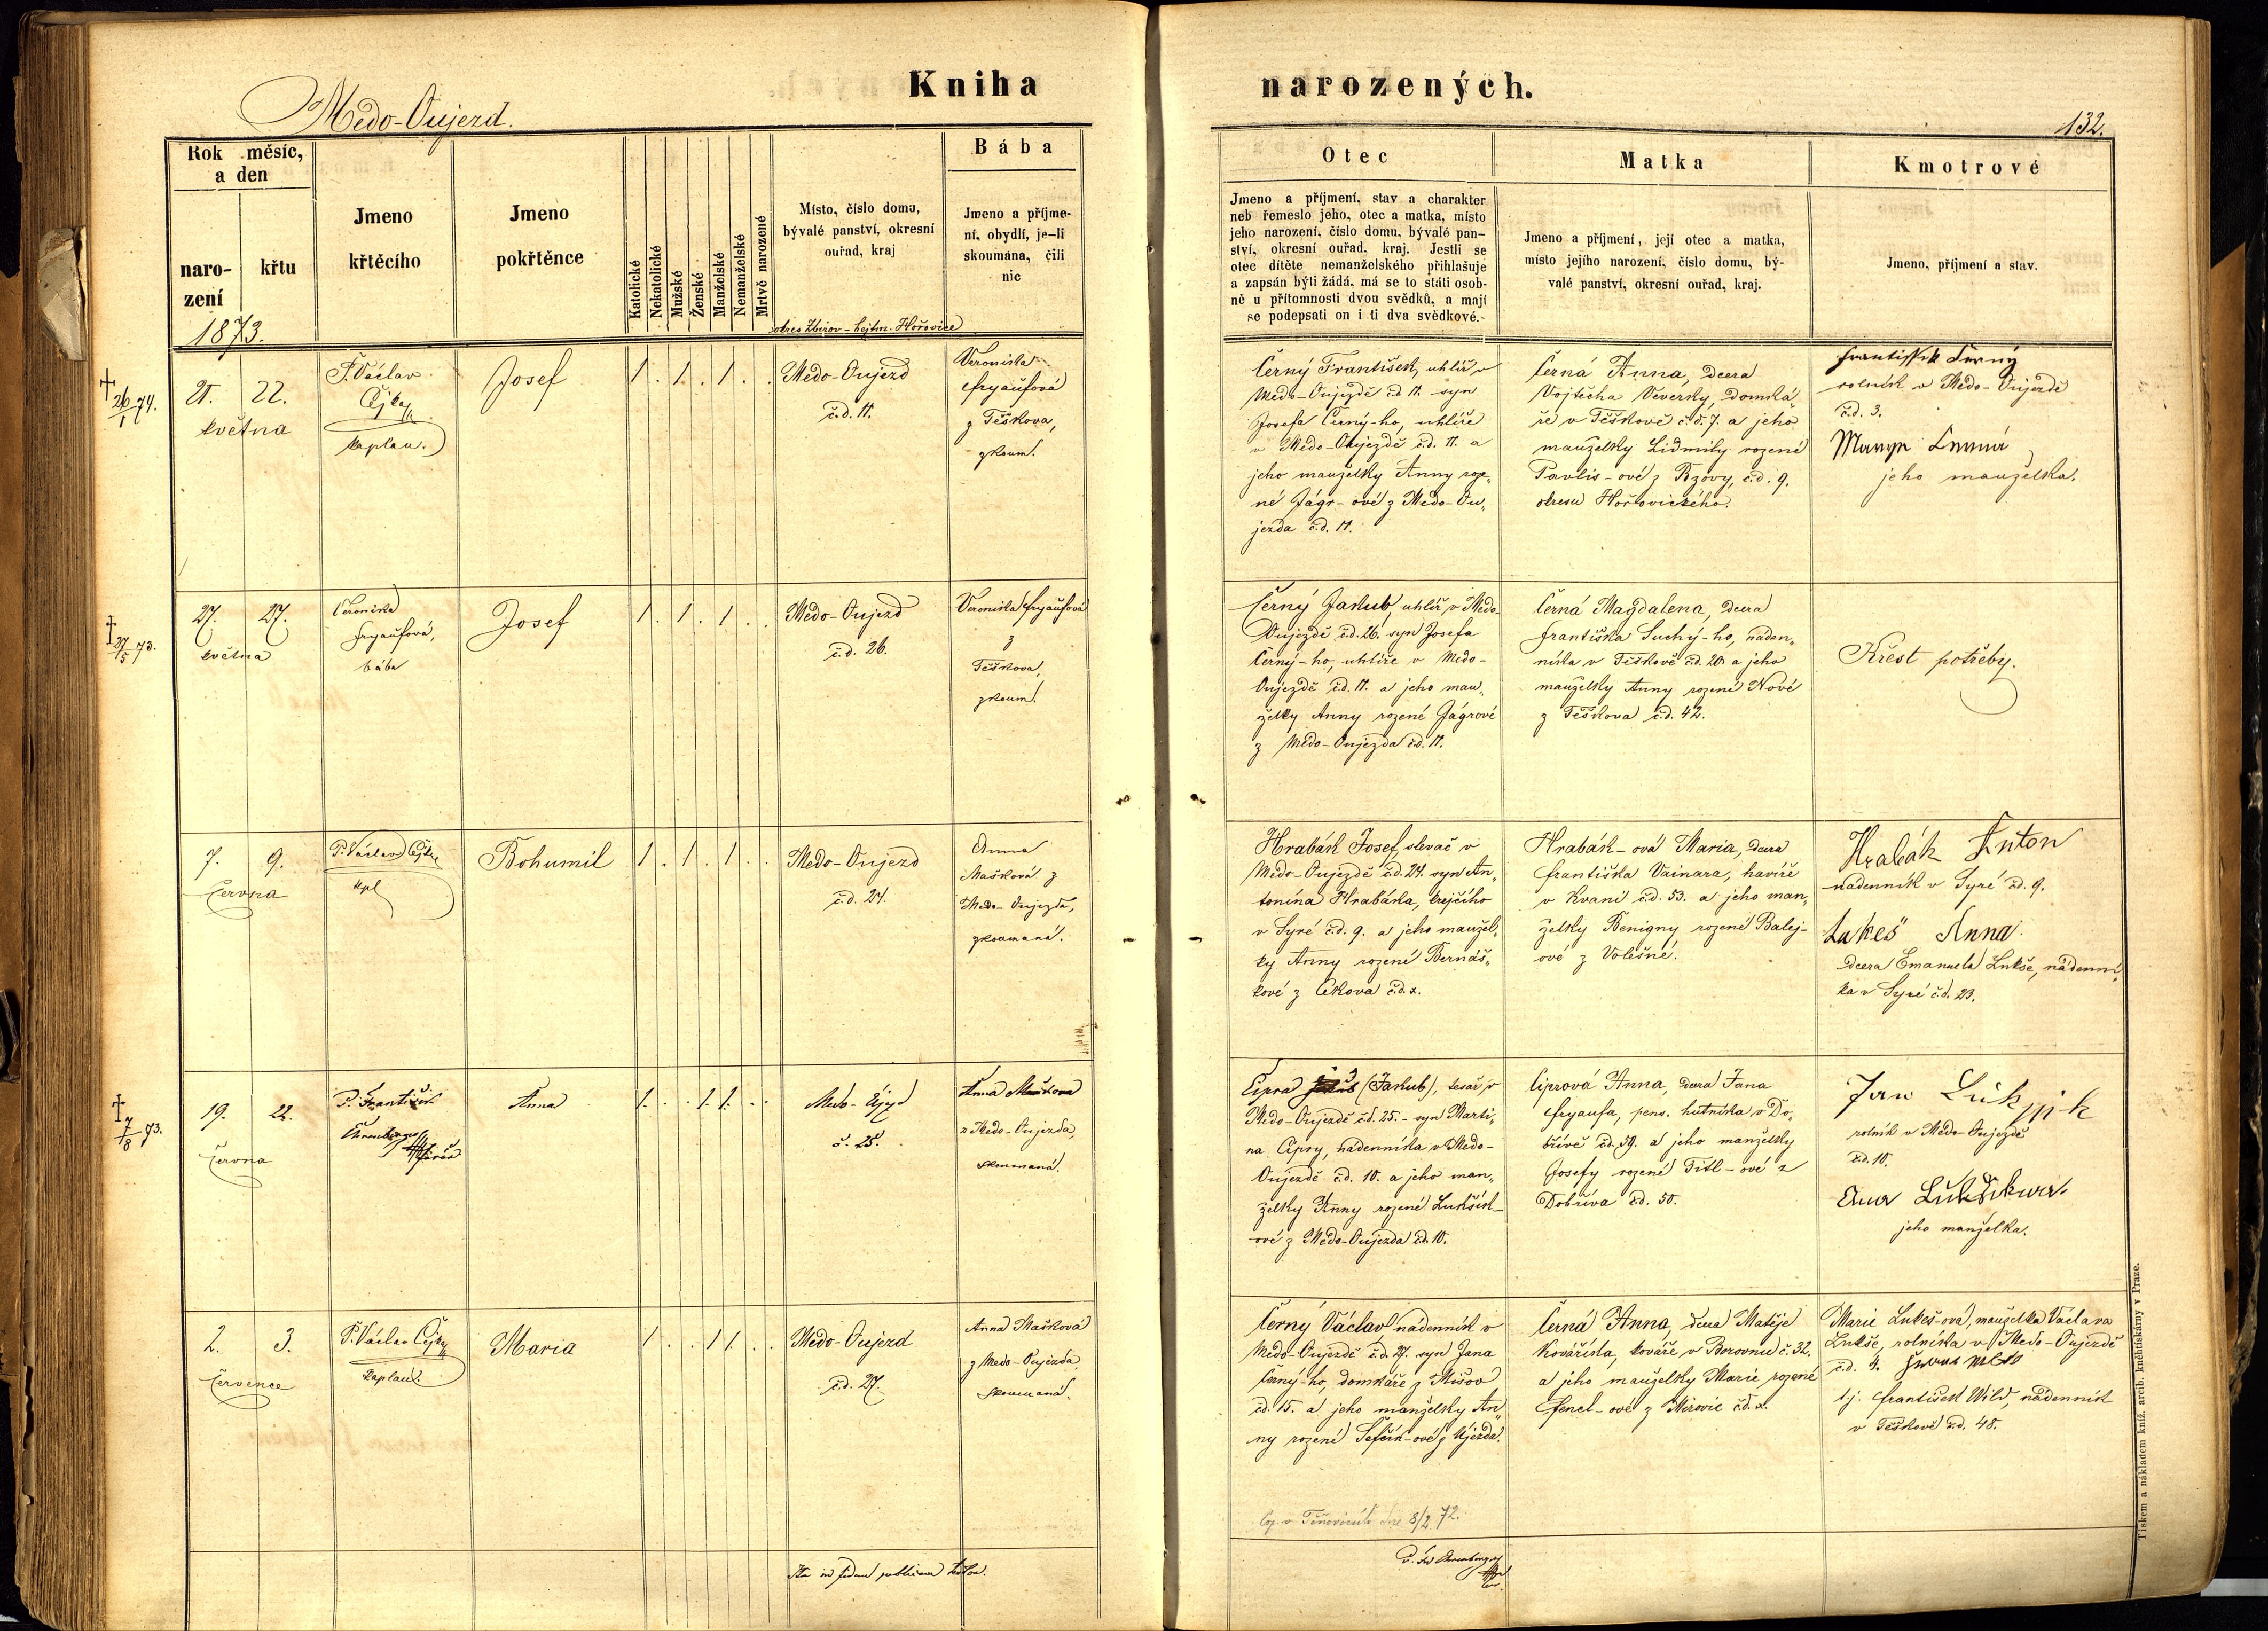 Kniha narozených.
Medo-Oujezd.
132.
Rok měsíc,
a den
naro-
zení
křtu
1873.
Jmeno
křtěcího
Jmeno
pokřtěnce
Katolické
Nekatolické
Mužské
Ženské
Manželské
Nemanželské
Mrtvě narozené
Místo, číslo domu,
bývalé panství, okresní
ouřad, kraj
okres Zbirov - hejtm. Hořovice
Bába
Jmeno a příjme-
ní, obydlí, je-li
skoumána, čili
nic
Otec
Jmeno a příjmení, stav a charakter
neb řemeslo jeho, otec a matka, místo
jeho narození, číslo domu, bývalé pan-
ství, okresní ouřad, kraj. Jestli se
otec dítěte nemanželského přihlašuje
a zapsán býti žádá, má se to státi osob-
ně u přítomnosti dvou svědků, a mají
se podepsati on i ti dva svědkové.
Matka
Jmeno a příjmení, její otec a matka,
místo jejího narození, číslo domu, bý-
valé panství, okresní ouřad, kraj.
Kmotrové
Jmeno, příjmení a stav.
† 26/1 74.
21. 22.
května
P. Václav
Cejka
kaplan.
Josef
1. . 1. . 1. . .
Medo-Oujezd
č.d. 11.
Veronika
Fryaufová
z Těškova,
zkoum.
Černý František, uhlíř v
Medo-Oujezdě č.d. 11. syn
Josefa Černý-ho, uhlíře
v Medo-Oujezdě č.d. 11. a
jeho manželky Anny roze-
né Jágr-ové z Medo-Ou-
jezda č.d. 11.
Černá Anna, dcera
Vojtěcha Veverky, domká-
ře v Těškově č.d. 7. a jeho
manželky Lidmily rozené
Pavlis-ové z Bzovy, č.d. 9.
okresu Hořovického.
František Černý
rolník v Medo-Oujezdě
č.d. 3.
jeho manželka.
† 27/5 73.
27. 27.
května
Veronika
Fryaufová,
bába
Josef
1. . 1. . 1. . .
Medo-Oujezd
č.d. 26.
Veronika Fryaufová
z
Těškova,
zkoum.
Černý Jakub, uhlíř v Medo-
Oujezdě č.d. 26. syn Josefa
Černý-ho, uhlíře v Medo-
Oujezdě č.d. 11. a jeho man-
želky Anny rozené Jágrové
z Medo-Oujezda č.d. 11.
Černá Magdalena, dcera
Františka Suchý-ho, náden-
níka v Těškově č.d. 20. a jeho
manželky Anny rozené Nové
z Těškova č.d. 42.
Křest potřeby.
7. 9.
června
P. Václav Cejka
kpl
Bohumil
1. . 1. . 1. . .
Medo-Oujezd
č.d. 24.
Anna
Mašková z
Medo-Oujezda,
zkoumaná.
Hrabák Josef, slevač v
Medo-Oujezdě č.d. 24. syn An-
tonína Hrabáka, krejčího
v Syré č.d. 9. a jeho manžel-
ky Anny rozené Bernáš-
kové z Cekova č.d. x.
Hrabák-ová Maria, dcera
Františka Vainara, havíře
v Kvani č.d. 53. a jeho man-
želky Benigny rozené Balej-
ové z Volešné.
Hrabák Anton
nádenník v Syré čd. 9.
Lukeš Anna.
dcera Emanuela Lukše, nádenní-
ka v Syré č.d. 23.
† 7/8 73.
19. 22.
června
P. František
Ehrenberger
farář
Anna
1. . . 1. 1. . .
Medo-Újezd
č. 25.
Anna Mašková
z Medo-Oujezda,
skoumaná.
Cipra (Jakub), tesař v
Medo-Oujezdě č.d. 25. - syn Marti-
na Cipry, nádenníka v Medo-
Oujezdě č.d. 10. a jeho man-
želky Anny rozené Lukšík-
ové z Medo-Oujezda č.d. 10.
Ciprová Anna, dcera Jana
Fryaufa, pens. hutníka v Do-
břívě č.d. 59. a jeho manželky
Josefy rozené Titl-ové z
Dobříva č.d. 50.
Jan
rolník v Medo-Oujezdě
č.d. 10.
jeho manželka.
2. 3.
července
P. Václav Cejka
kaplan.
Maria
1. . . 1 1. . .
Medo-Oujezd
č.d. 27.
Anna Mašková
z Medo-Oujezda
skoumaná.
Černý Václav nádenník v
Medo-Oujezdě č.d. 27. syn Jana
Černý-ho, domkáře z Mišov
č.d. 15. a jeho manželky An-
ny rozené Šefčík-ové z Újezda.
Černá Anna, dcera Matěje
Kováříka, kováře v Borovnu č. 32.
a jeho manželky Marie rozené
Fencl-ové z Mirovic č.d. x.
Marie Lukeš-ová, manželka Václava
Lukše, rolníka v Medo-Oujezdě
č.d. 4.
t.j. František Wild, nádenník
v Těškově č.d. 48.
Cop. v Těnovicích dne 8/2 72.
Ita in fidem publicam testor.
P. Fr. Ehrenberger
Tiskem a nákladem kníž. arcib. kněhtiskárny v Praze.